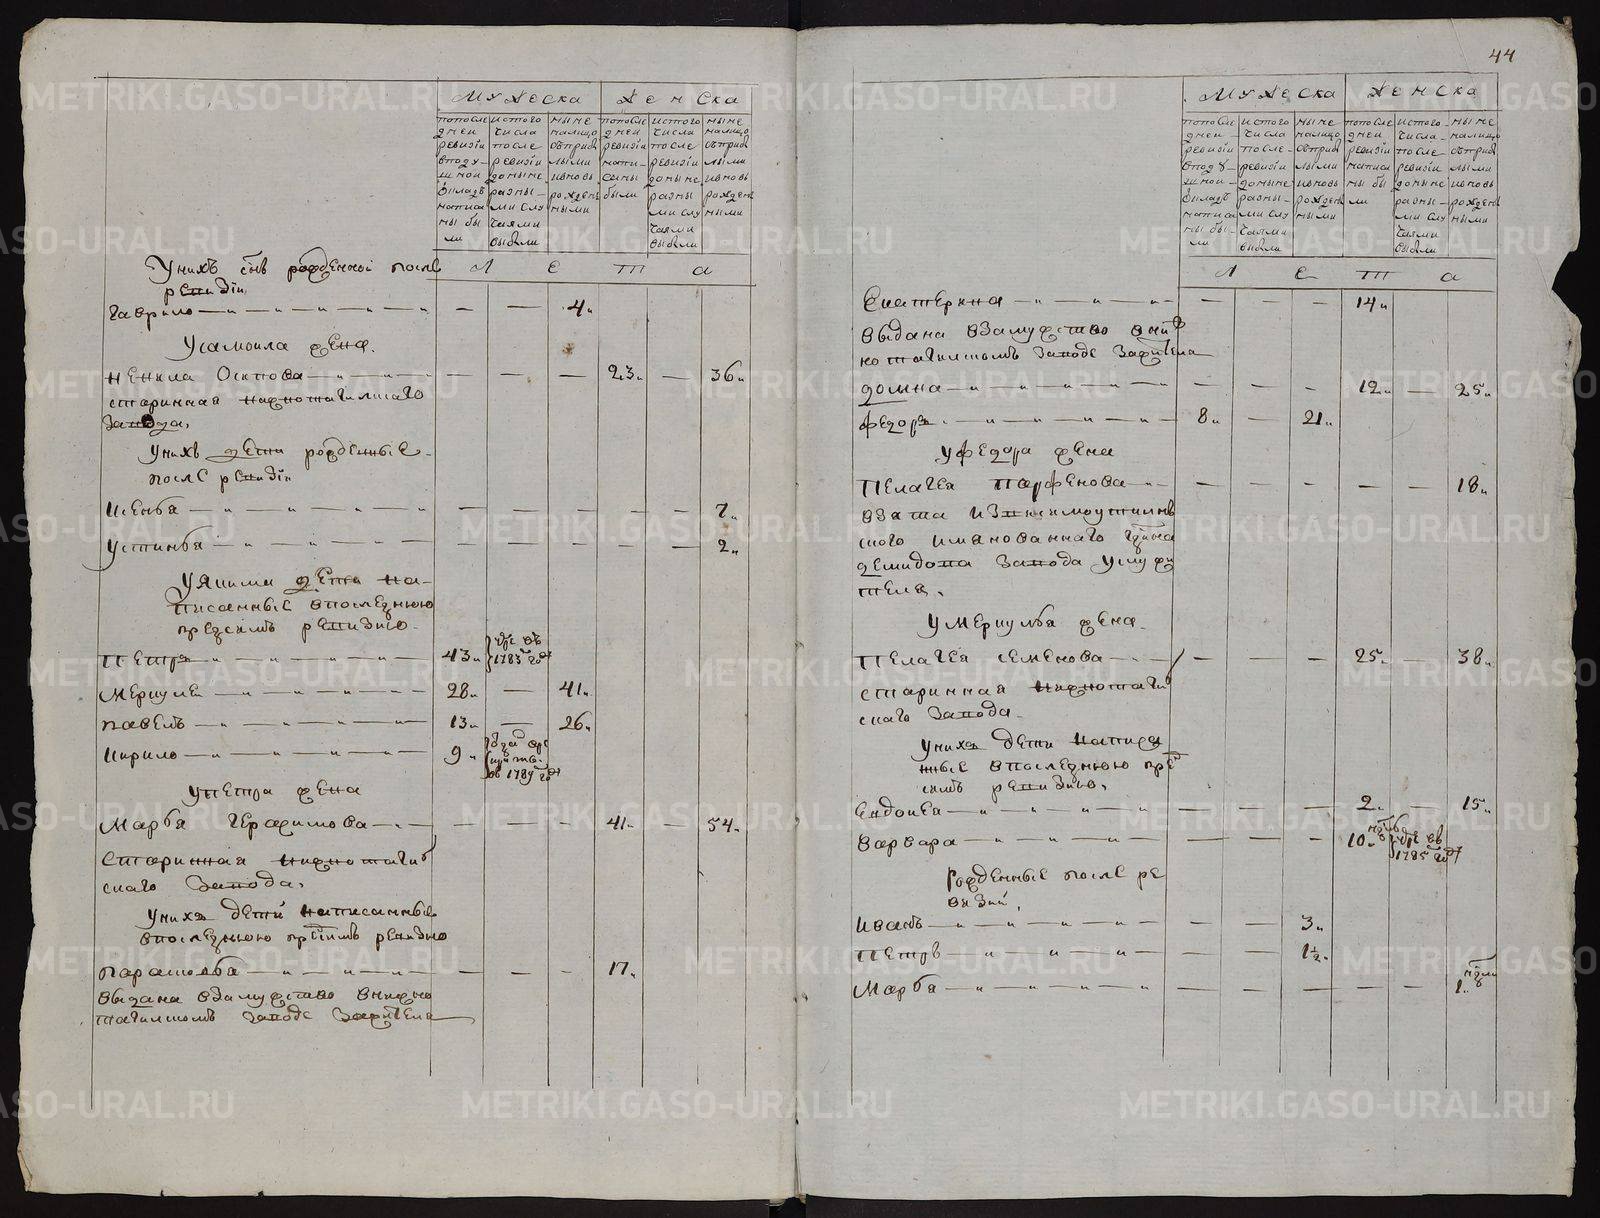 44
Мужеска Женска
попосле дней ревизiи вподушной окладъ написаны были
истого числа после ревизiи доныне разными случаями выбыли
ныне налицо сприбылыми ивновь рожденными
попосле дней ревизiи написаны были
истого числа после ревизiи доныне разными случаями выбыли
ныне налицо сприбылыми ивновь рожденными
Л е т а
Унихъ снъ рожденной после
ревизiи
гаврило — — 4
Усамоила жена
ненила Осипова — — — 23 — 36
старинная нижнотагилскаго
завода
Унихъ дети рожденные
после ревизiи
— — — — — 7
Устинья — — — — — 2
Уякима дети на-
писанные впоследнюю
пред симъ ревизию
Петръ 43 умре въ
1785 году
Меркулей 28 — 41
павелъ 13 — 26
кирило 9
въ 1789 году
Упетра жена
Марфа Герасимова — — — 41 — 54
Старинная нижнотагил
скаго завода
Униха дети написанные
впоследнюю пред симъ ревизию
парасковья — — — 17
выдана взамужство внижно
тагилскомъ заводе зажителя
Мужеска Женска
попосле дней ревизiи вподушной окладъ написаны были
истого числа после ревизiи доныне разными случаями выбыли
ныне налицо сприбылыми ивновь рожденными
попосле дней ревизiи написаны были
истого числа после ревизiи доныне разными случаями выбыли
ныне налицо сприбылыми ивновь рожденными
Л е т а
Екатерина — — — 14
выдана взамужство вниж
нотагилскомъ заводе зажителя
домна — — — 12 — 25
федоръ 8 — 21
Уфедора жена
Пелагея Парфенова — — — — — 18
взята
скаго имянованнаго гдина
демидова завода услужи
теля
Умеркулья жена
Пелагея семенова — — — 25 — 38
старинная нижнотагил
скаго завода
Униха дети написа
нные впоследнюю пред
симъ ревизию
Евдокея — — — 2 — 15
варвара — — — 10 нед умре въ
1785 году
рожденные после ре
визiи
иванъ — — 3
Петръ — — 1½
Марфа — — — — — 1 неделя